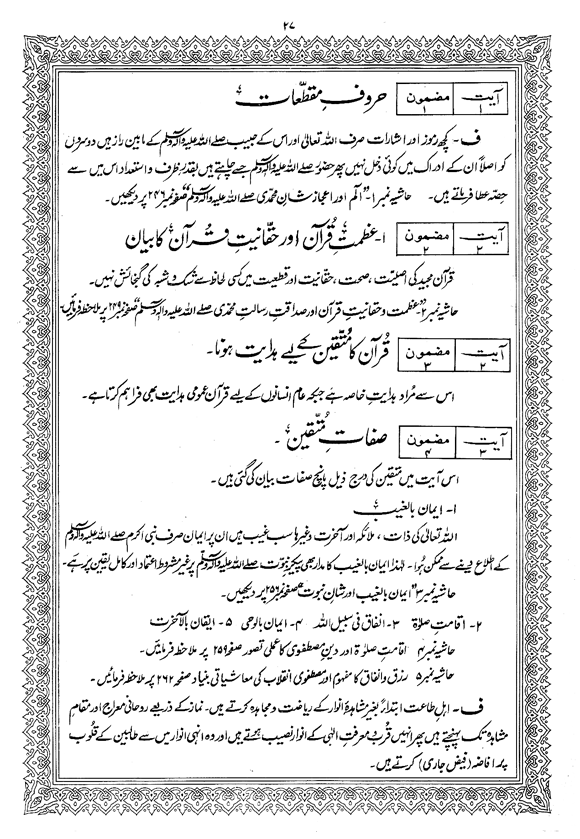 ۲۷
آیت ۱ مضمون ۱ حروفِ مقطّعات
ف۔ کچھ رموز اور اشارات صرف اللہ تعالیٰ اور اس کے حبیب صلے اللہ علیہ وآلہٖ وسلم کے مابین راز ہیں دوسروں
کو اصلاً ان کے ادراک میں کوئی دخل نہیں پھر حضور صلے اللہ علیہ وآلہٖ وسلم جسے چاہتے ہیں بقدرِ ظرف و استعداد اس میں سے
حصہ عطا فرماتے ہیں۔ حاشیہ نمبر ۱ "الٓم اور اعجازِ شانِ محمدی صلے اللہ علیہ وآلہٖ وسلم" صفحہ نمبر ۲۴۶ پر دیکھیں۔
آیت ۲ مضمون ۲ ۱۔ عظمتِ قُرآن اور حقانیتِ قرآن کا بیان
قرآن مجید کی اصلیت، صحت، حقانیت اور قطعیت میں کسی لحاظ سے شک و شبہ کی گنجائش نہیں۔
حاشیہ نمبر ۲ "عظمت و حقانیتِ قرآن اور صداقتِ رسالتِ محمدی صلے اللہ علیہ وآلہٖ وسلم" صفحہ نمبر ۲۴۹ پر ملاحظہ فرمائیں
آیت ۲ مضمون ۳ قُرآن کا مُتّقین کے لیے ہدایت ہونا۔
اس سے مُراد ہدایتِ خاصہ ہے جبکہ عام انسانوں کے لیے قرآن عمومی ہدایت بھی فراہم کرتا ہے۔
آیت ۳ مضمون ۴ صفاتِ مُتّقین۔
اس آیت میں متقین کی درج ذیل پانچ صفات بیان کی گئی ہیں۔
۱۔ ایمان بالغیب
اللہ تعالیٰ کی ذات، ملائکہ اور آخرت وغیرہا سب غیب ہیں ان پر ایمان صرف نبی اکرم صلے اللہ علیہ وآلہٖ وسلم
کے اطلاع دینے سے ممکن ہُوا۔ لہٰذا ایمان بالغیب کا مدار بھی پیکرِ نبوت صلے اللہ علیہ وآلہٖ وسلم پر غیر مشروط اعتماد اور کامل یقین پر ہے۔
حاشیہ نمبر ۳ "ایمان بالغیب اور شانِ نبوت" صفحہ نمبر ۲۵۶ پر دیکھیں۔
۲۔ اقامتِ صلوٰۃ ۳۔ انفاق فی سبیل اللہ ۴۔ ایمان بالوحی ۵۔ ایقان بالآخرت
حاشیہ نمبر ۴ اقامتِ صلوٰۃ اور دینِ مصطفوی کا عملی تصور صفحہ ۲۵۹ پر ملاحظہ فرمائیں۔
حاشیہ نمبر ۵ رزق و انفاق کا مفہوم اور مصطفوی انقلاب کی معاشیاتی بنیاد صفحہ ۲۶۲ پر ملاحظہ فرمائیں۔
ف۔ اہلِ طاعت ابتداءً بغیر مشاہدۂ انوار کے ریاضت و مجاہدہ کرتے ہیں۔ نماز کے ذریعے روحانی معراج اور مقامِ
مشاہدہ تک پہنچتے ہیں پھر انہیں قُرب و معرفتِ الٰہی کے انوار نصیب ہوتے ہیں اور وہ انہی انوار میں سے طالبین کے قلوب
پر افاضہ (فیض جاری) کرتے ہیں۔